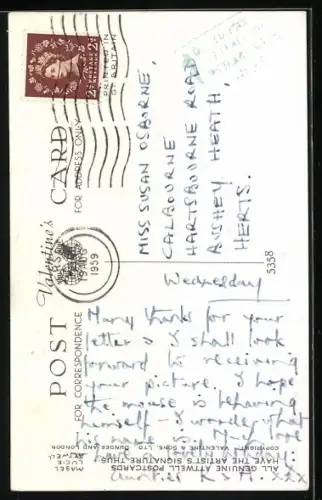 POST CARD
Valentine's
FOR CORRESPONDENCE
FOR ADDRESS ONLY
PRINTED IN
GT BRITAIN
1959
MISS SUSAN OSBORNE,
CALBOURNE
HARTSBOURNE ROAD
BUSHEY HEATH,
HERTS.
5358
Wednesday
Many thanks for your
letter & I shall look
forward to receiving
your picture. I hope
the mouse is behaving
himself - I wonder what
his name is
Aunties K
XXX
ALL GENUINE ATTWELL POSTCARDS
HAVE THE ARTIST'S SIGNATURE THUS
MABEL
LUCIE
ATTWELL
COPYRIGHT. VALENTINE & SONS, LTD. DUNDEE AND LONDON